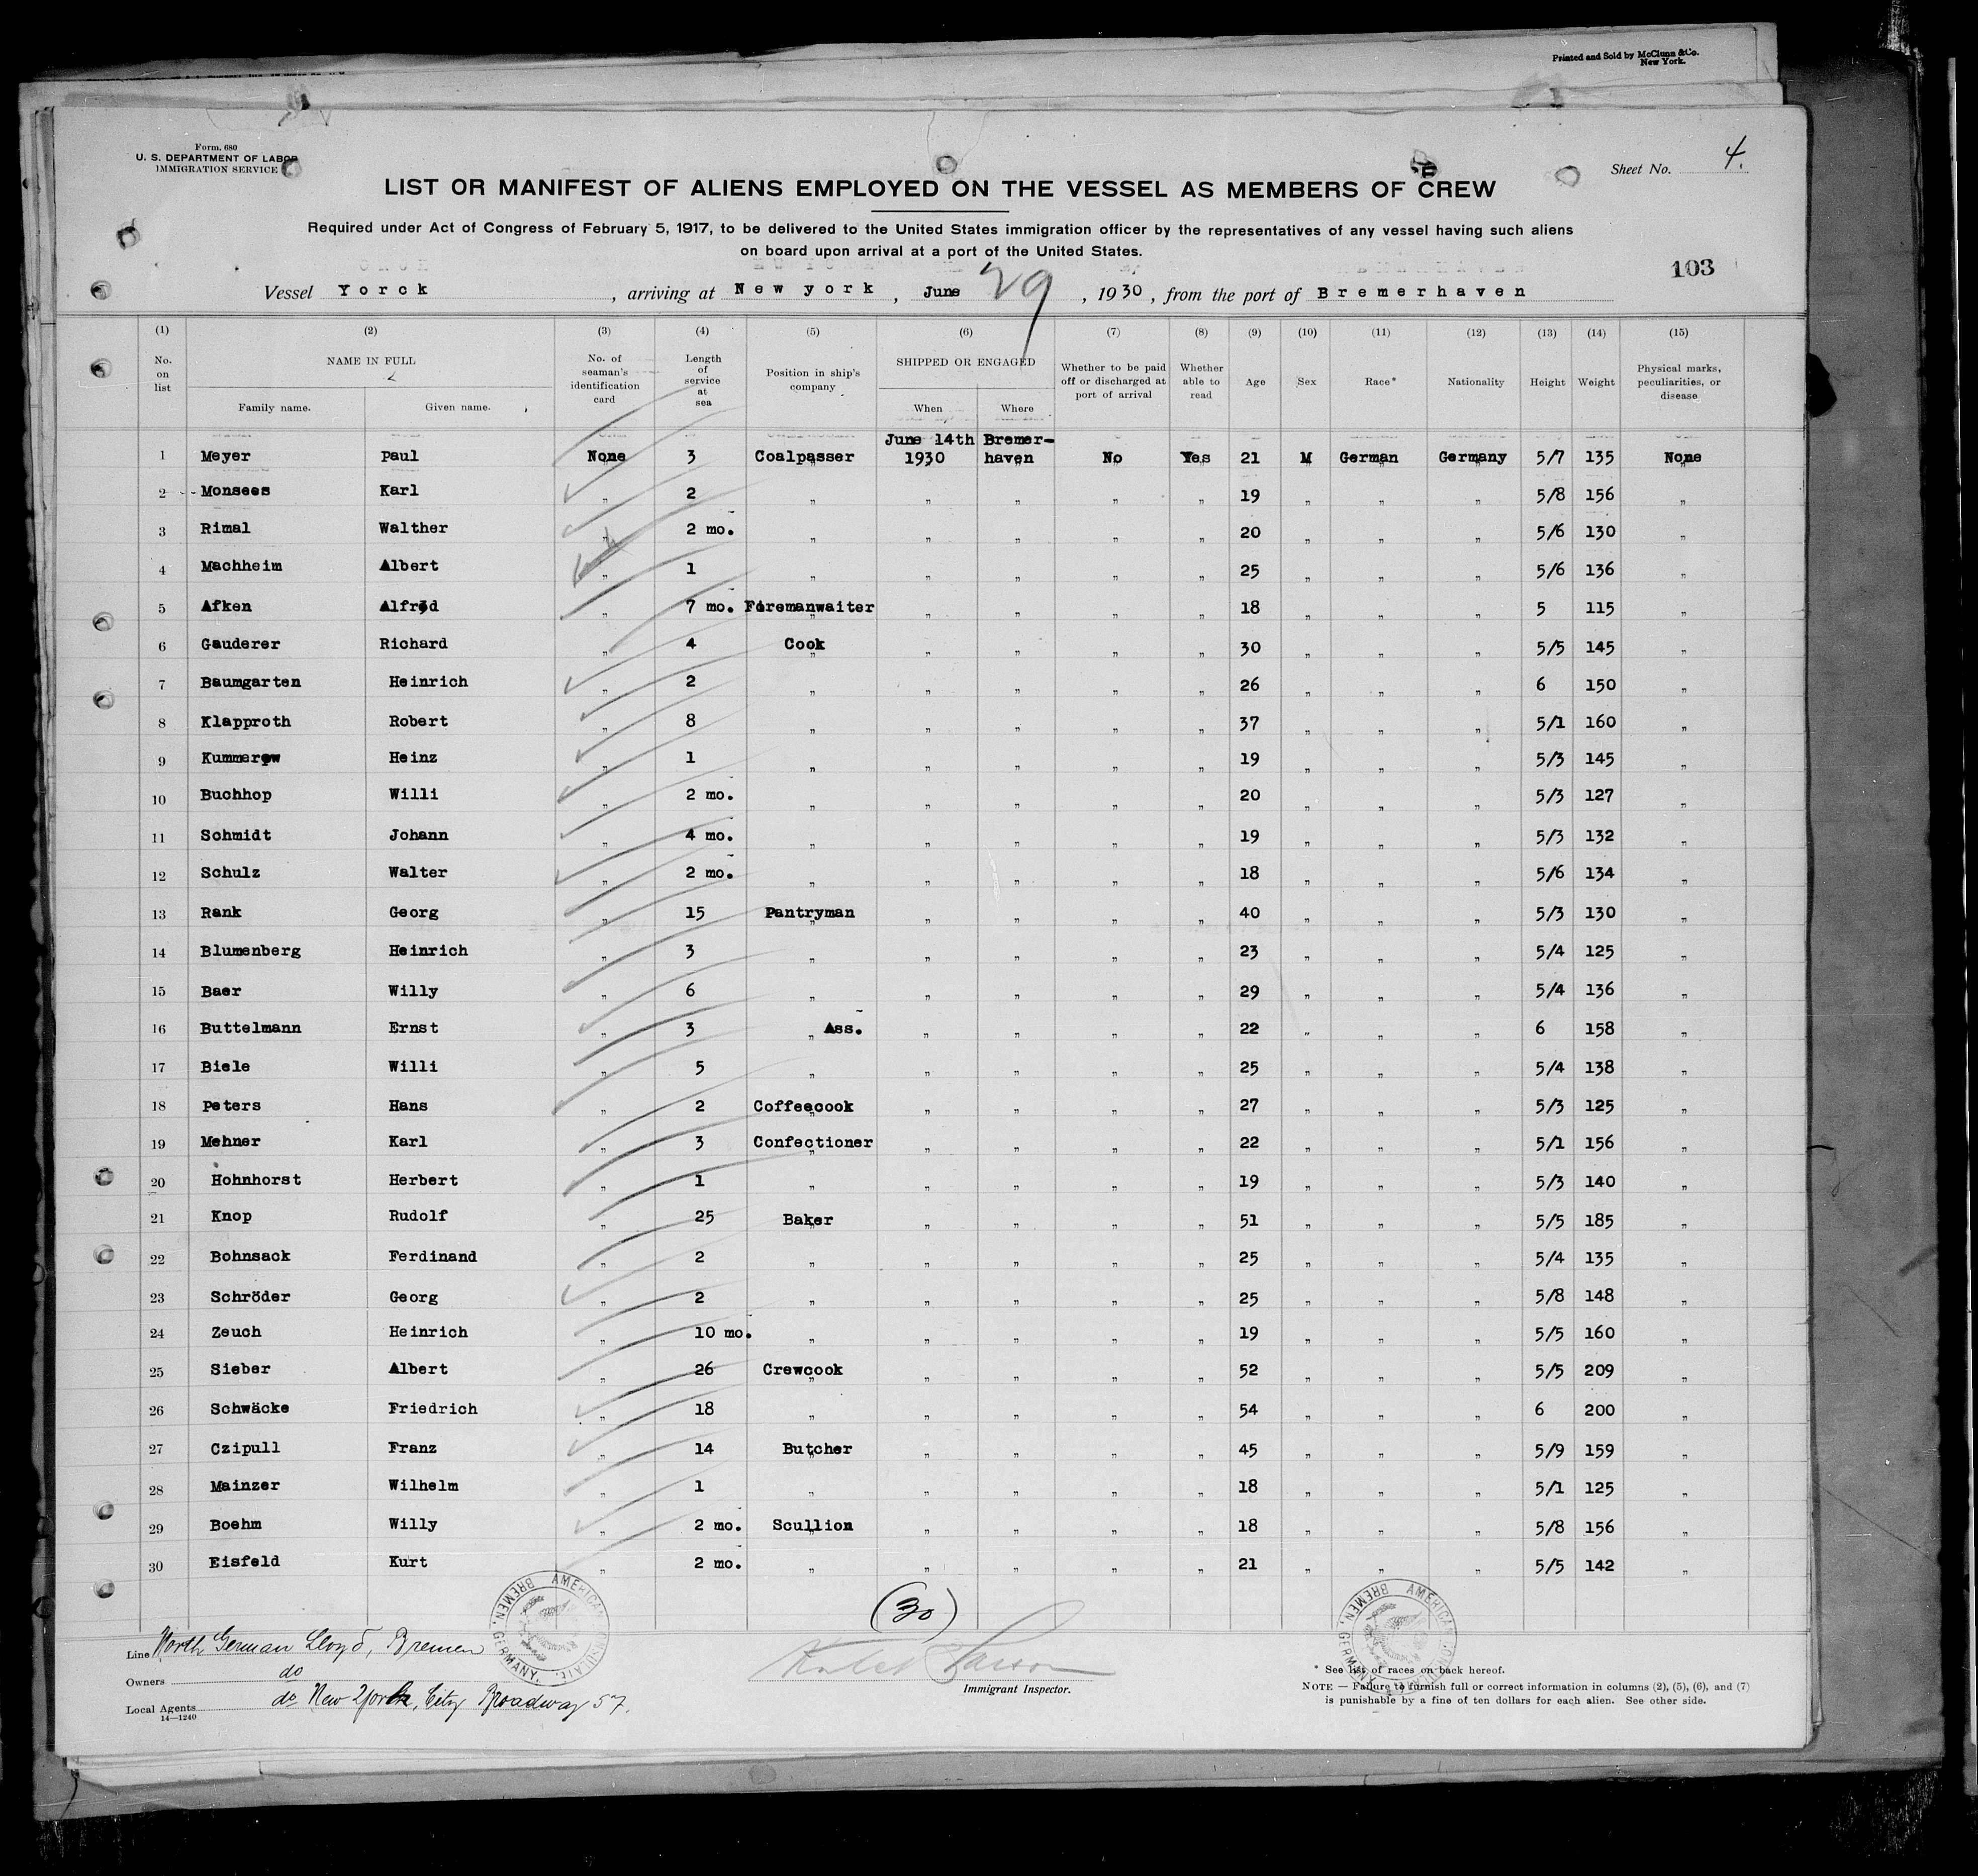 Printed and Sold by McClunn & Co.
New York.
Form. 680
U. S. DEPARTMENT OF LABOR
IMMIGRATION SERVICE
Sheet No. 4.
LIST OR MANIFEST OF ALIENS EMPLOYED ON THE VESSEL AS MEMBERS OF CREW
Required under Act of Congress of February 5, 1917, to be delivered to the United States immigration officer by the representatives of any vessel having such aliens
on board upon arrival at a port of the United States.
103
Vessel Yorck, arriving at New york, June 29, 1930, from the port of Bremerhaven
(1) (2) (3) (4) (5) (6) (7) (8) (9) (10) (11) (12) (13) (14) (15)
No. on list NAME IN FULL Family name. Given name. No. of seaman's identification card Length of service at sea Position in ship's company SHIPPED OR ENGAGED When Where Whether to be paid off or discharged at port of arrival Whether able to read Age Sex Race* Nationality Height Weight Physical marks, peculiarities, or disease
June 14th Bremer-
1 Meyer Paul None 3 Coalpasser 1930 haven No Yes 21 M German Germany 5/7 135 None
2 Monsees Karl „ 2 „ „ „ „ „ 19 „ „ „ 5/8 156 „
3 Rimal Walther „ 2 mo. „ „ „ „ „ 20 „ „ „ 5/6 130 „
4 Machheim Albert „ 1 „ „ „ „ „ 25 „ „ „ 5/6 136 „
5 Afken Alfred „ 7 mo. Foremanwaiter „ „ „ „ 18 „ „ „ 5 115 „
6 Gauderer Richard „ 4 Cook „ „ „ „ 30 „ „ „ 5/5 145 „
7 Baumgarten Heinrich „ 2 „ „ „ „ „ 26 „ „ „ 6 150 „
8 Klapproth Robert „ 8 „ „ „ „ „ 37 „ „ „ 5/1 160 „
9 Kummerow Heinz „ 1 „ „ „ „ „ 19 „ „ „ 5/3 145 „
10 Buchhop Willi „ 2 mo. „ „ „ „ „ 20 „ „ „ 5/3 127 „
11 Schmidt Johann „ 4 mo. „ „ „ „ „ 19 „ „ „ 5/3 132 „
12 Schulz Walter „ 2 mo. „ „ „ „ „ 18 „ „ „ 5/6 134 „
13 Rank Georg „ 15 Pantryman „ „ „ „ 40 „ „ „ 5/3 130 „
14 Blumenberg Heinrich „ 3 „ „ „ „ „ 23 „ „ „ 5/4 125 „
15 Baer Willy „ 6 „ „ „ „ „ 29 „ „ „ 5/4 136 „
16 Buttelmann Ernst „ 3 „ Ass. „ „ „ „ 22 „ „ „ 6 158 „
17 Biele Willi „ 5 „ „ „ „ „ 25 „ „ „ 5/4 138 „
18 Peters Hans „ 2 Coffeecook „ „ „ „ 27 „ „ „ 5/3 125 „
19 Mehner Karl „ 3 Confectioner „ „ „ „ 22 „ „ „ 5/1 156 „
20 Hohnhorst Herbert „ 1 „ „ „ „ „ 19 „ „ „ 5/3 140 „
21 Knop Rudolf „ 25 Baker „ „ „ „ 51 „ „ „ 5/5 185 „
22 Bohnsack Ferdinand „ 2 „ „ „ „ „ 25 „ „ „ 5/4 135 „
23 Schröder Georg „ 2 „ „ „ „ „ 25 „ „ „ 5/8 148 „
24 Zeuch Heinrich „ 10 mo. „ „ „ „ „ 19 „ „ „ 5/5 160 „
25 Sieber Albert „ 26 Crewcook „ „ „ „ 52 „ „ „ 5/5 209 „
26 Schwäcke Friedrich „ 18 „ „ „ „ „ 54 „ „ „ 6 200 „
27 Czipull Franz „ 14 Butcher „ „ „ „ 45 „ „ „ 5/9 159 „
28 Mainzer Wilhelm „ 1 „ „ „ „ „ 18 „ „ „ 5/1 125 „
29 Boehm Willy „ 2 mo. Scullion „ „ „ „ 18 „ „ „ 5/8 156 „
30 Eisfeld Kurt „ 2 mo. „ „ „ „ „ 21 „ „ „ 5/5 142 „
(30)
AMERICAN CONSULATE. BREMEN, GERMANY.
AMERICAN CONSULATE. BREMEN, GERMANY.
Line North German Lloyd, Bremen
Owners do
Local Agents do New York, City Broadway 57.
14—1240
Immigrant Inspector.
* See list of races on back hereof.
NOTE — Failure to furnish full or correct information in columns (2), (5), (6), and (7)
is punishable by a fine of ten dollars for each alien. See other side.